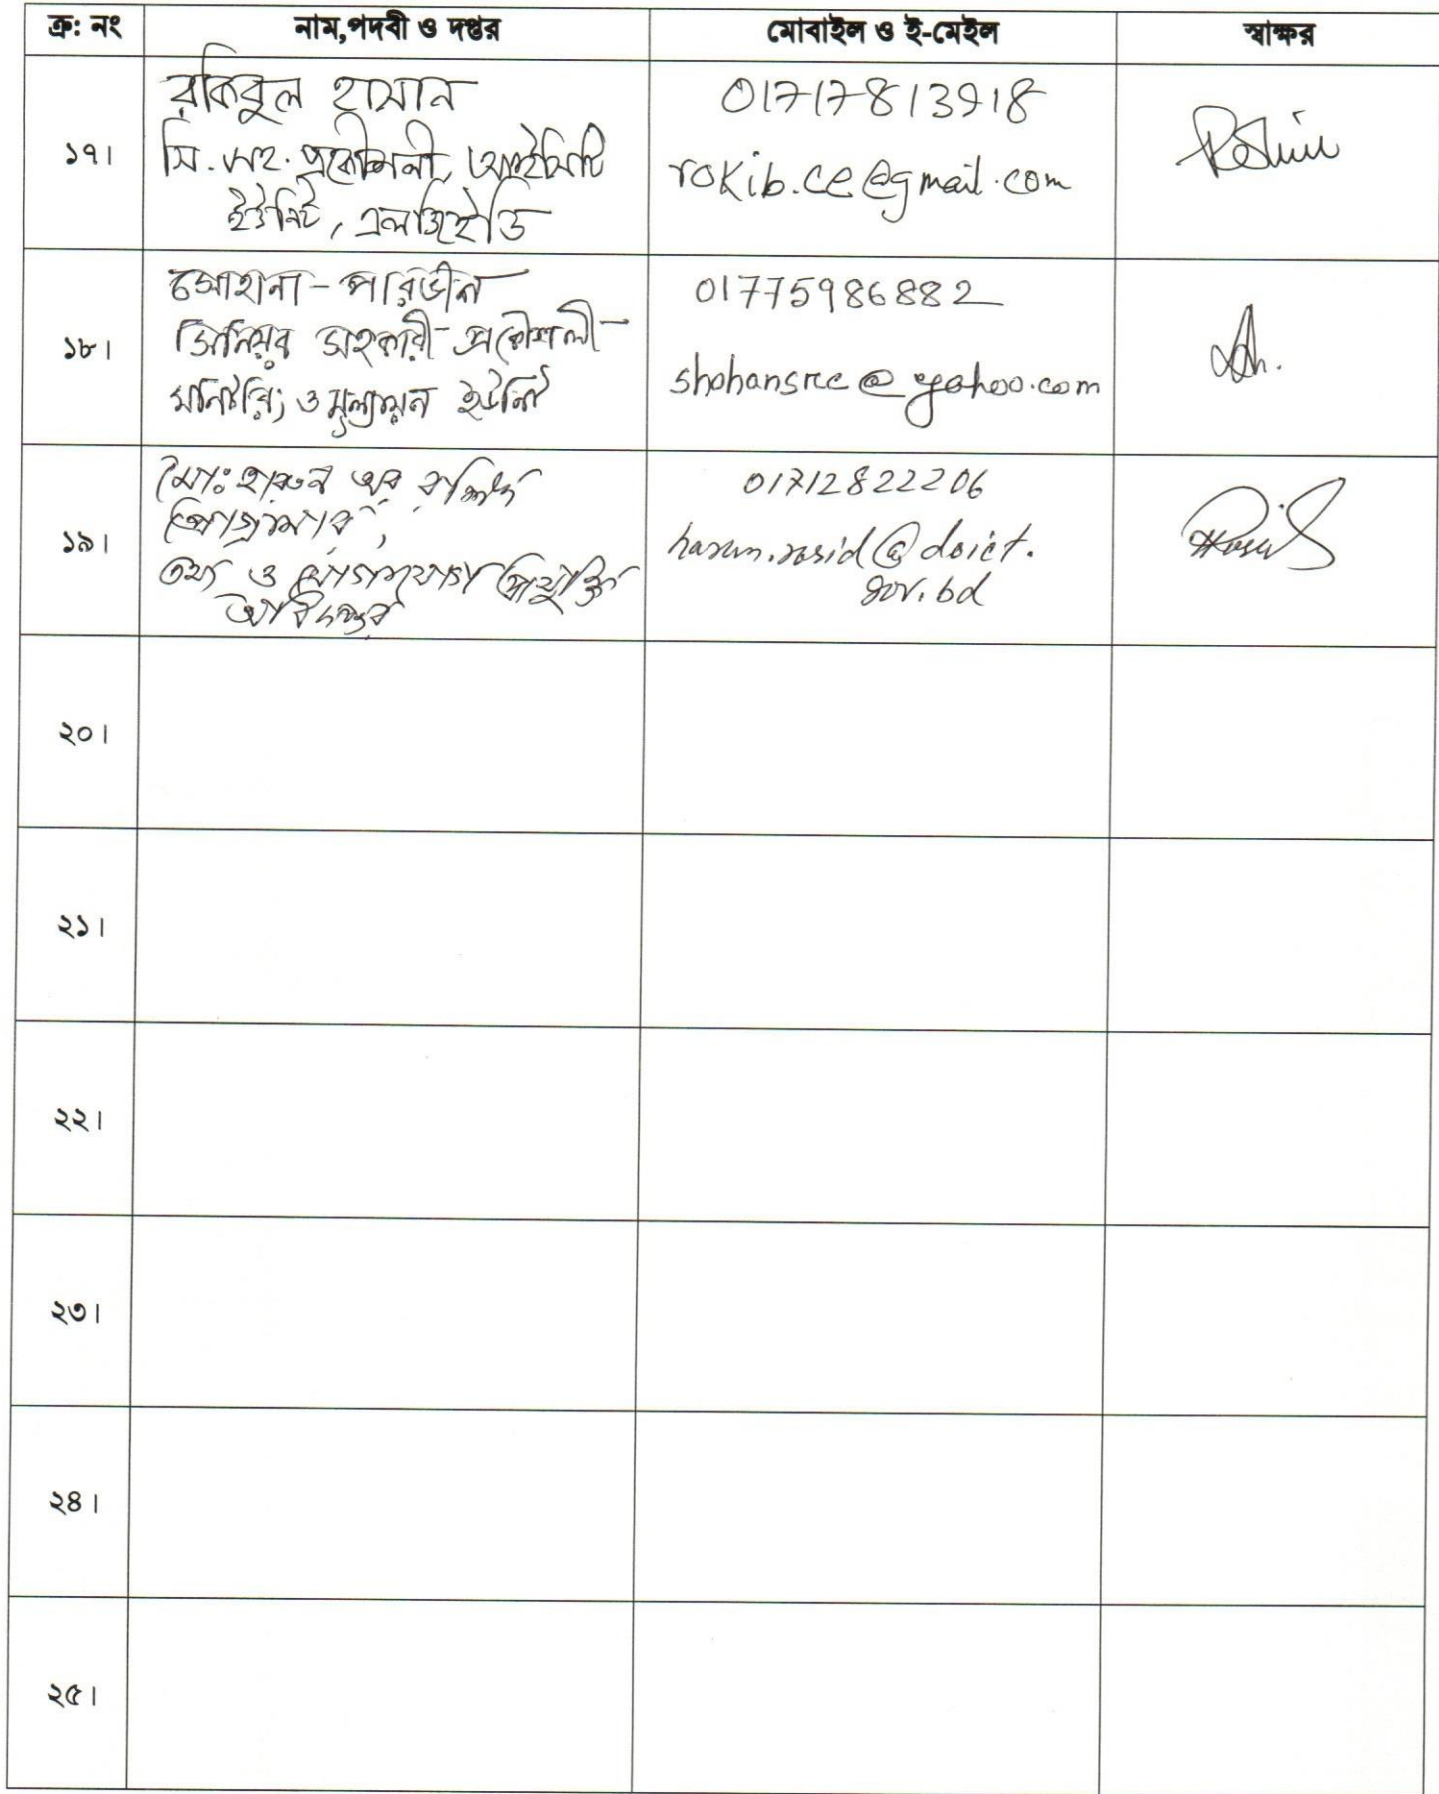 ক্র: নং নাম,পদবী ও দপ্তর মোবাইল ও ই-মেইল স্বাক্ষর
১৭। রকিবুল হাসান
সি. সহ. প্রকৌশলী, আইসিটি
ইউনিট, এলজিইডি
01717813918
rokib.ce@gmail.com
১৮। সোহানা পারভীন
সিনিয়র সহকারী প্রকৌশলী
মনিটরিং ও মূল্যায়ন ইউনিট
01775986882
shohansrce@yahoo.com
১৯। মোঃ হারুন অর রশিদ
প্রোগ্রামার,
তথ্য ও যোগাযোগ প্রযুক্তি
অধিদপ্তর
01712822206
harun.rasid@doict.
gov.bd
২০।
২১।
২২।
২৩।
২৪।
২৫।